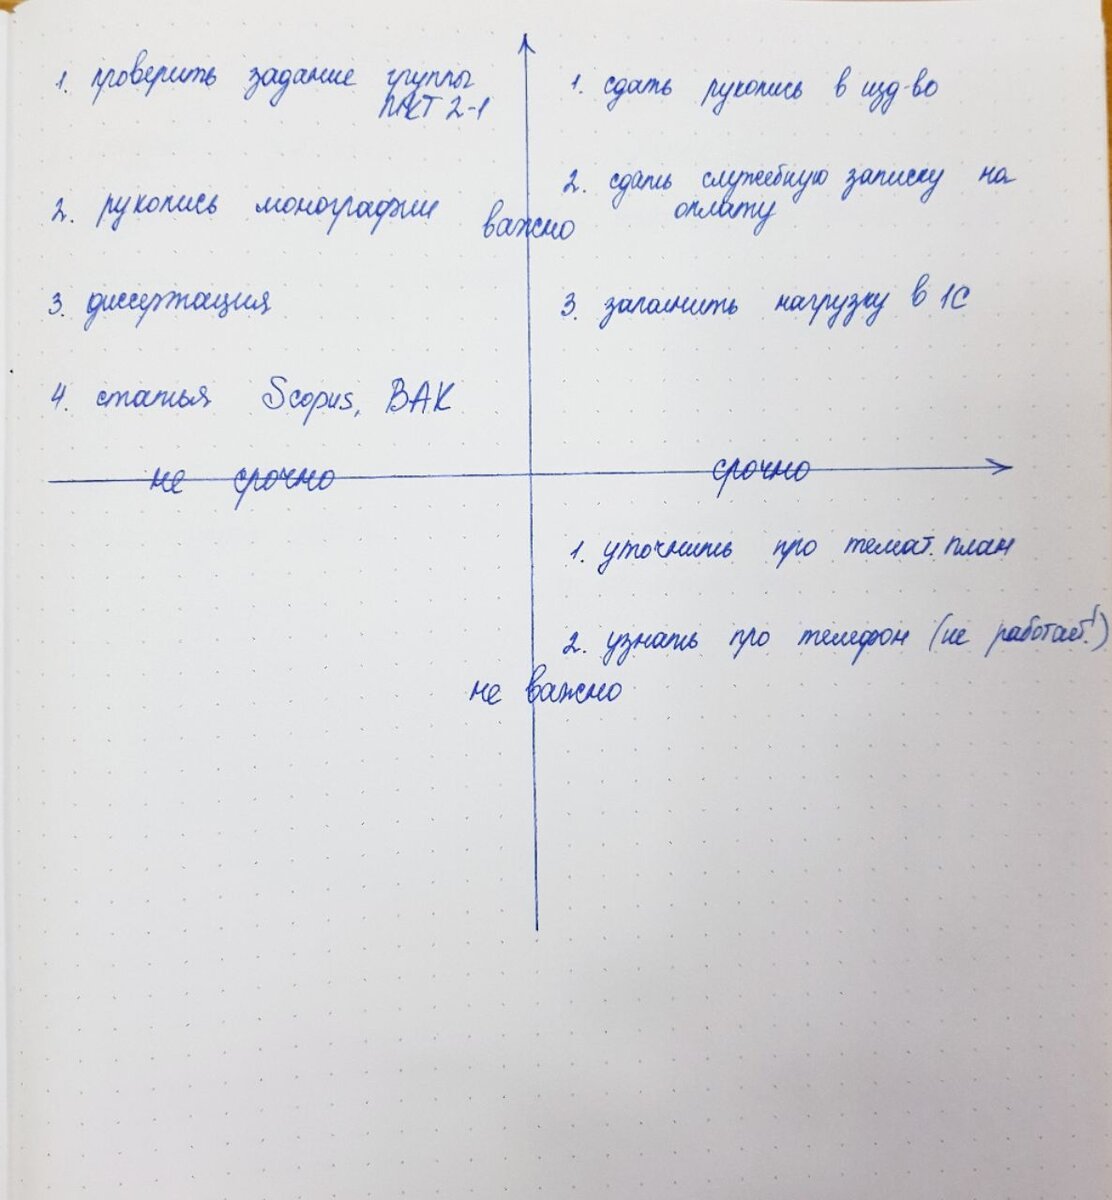 1. проверить задание группы
ПАСТ 2-1
2. рукопись монографии
3. диссертация
4. статья Scopus, ВАК
1. сдать рукопись в изд-во
2. сдать служебную записку на
оплату
3. заполнить нагрузку в 1С
важно
не срочно
срочно
1. уточнить про темат. план
2. узнать про телефон (не работает!)
не важно